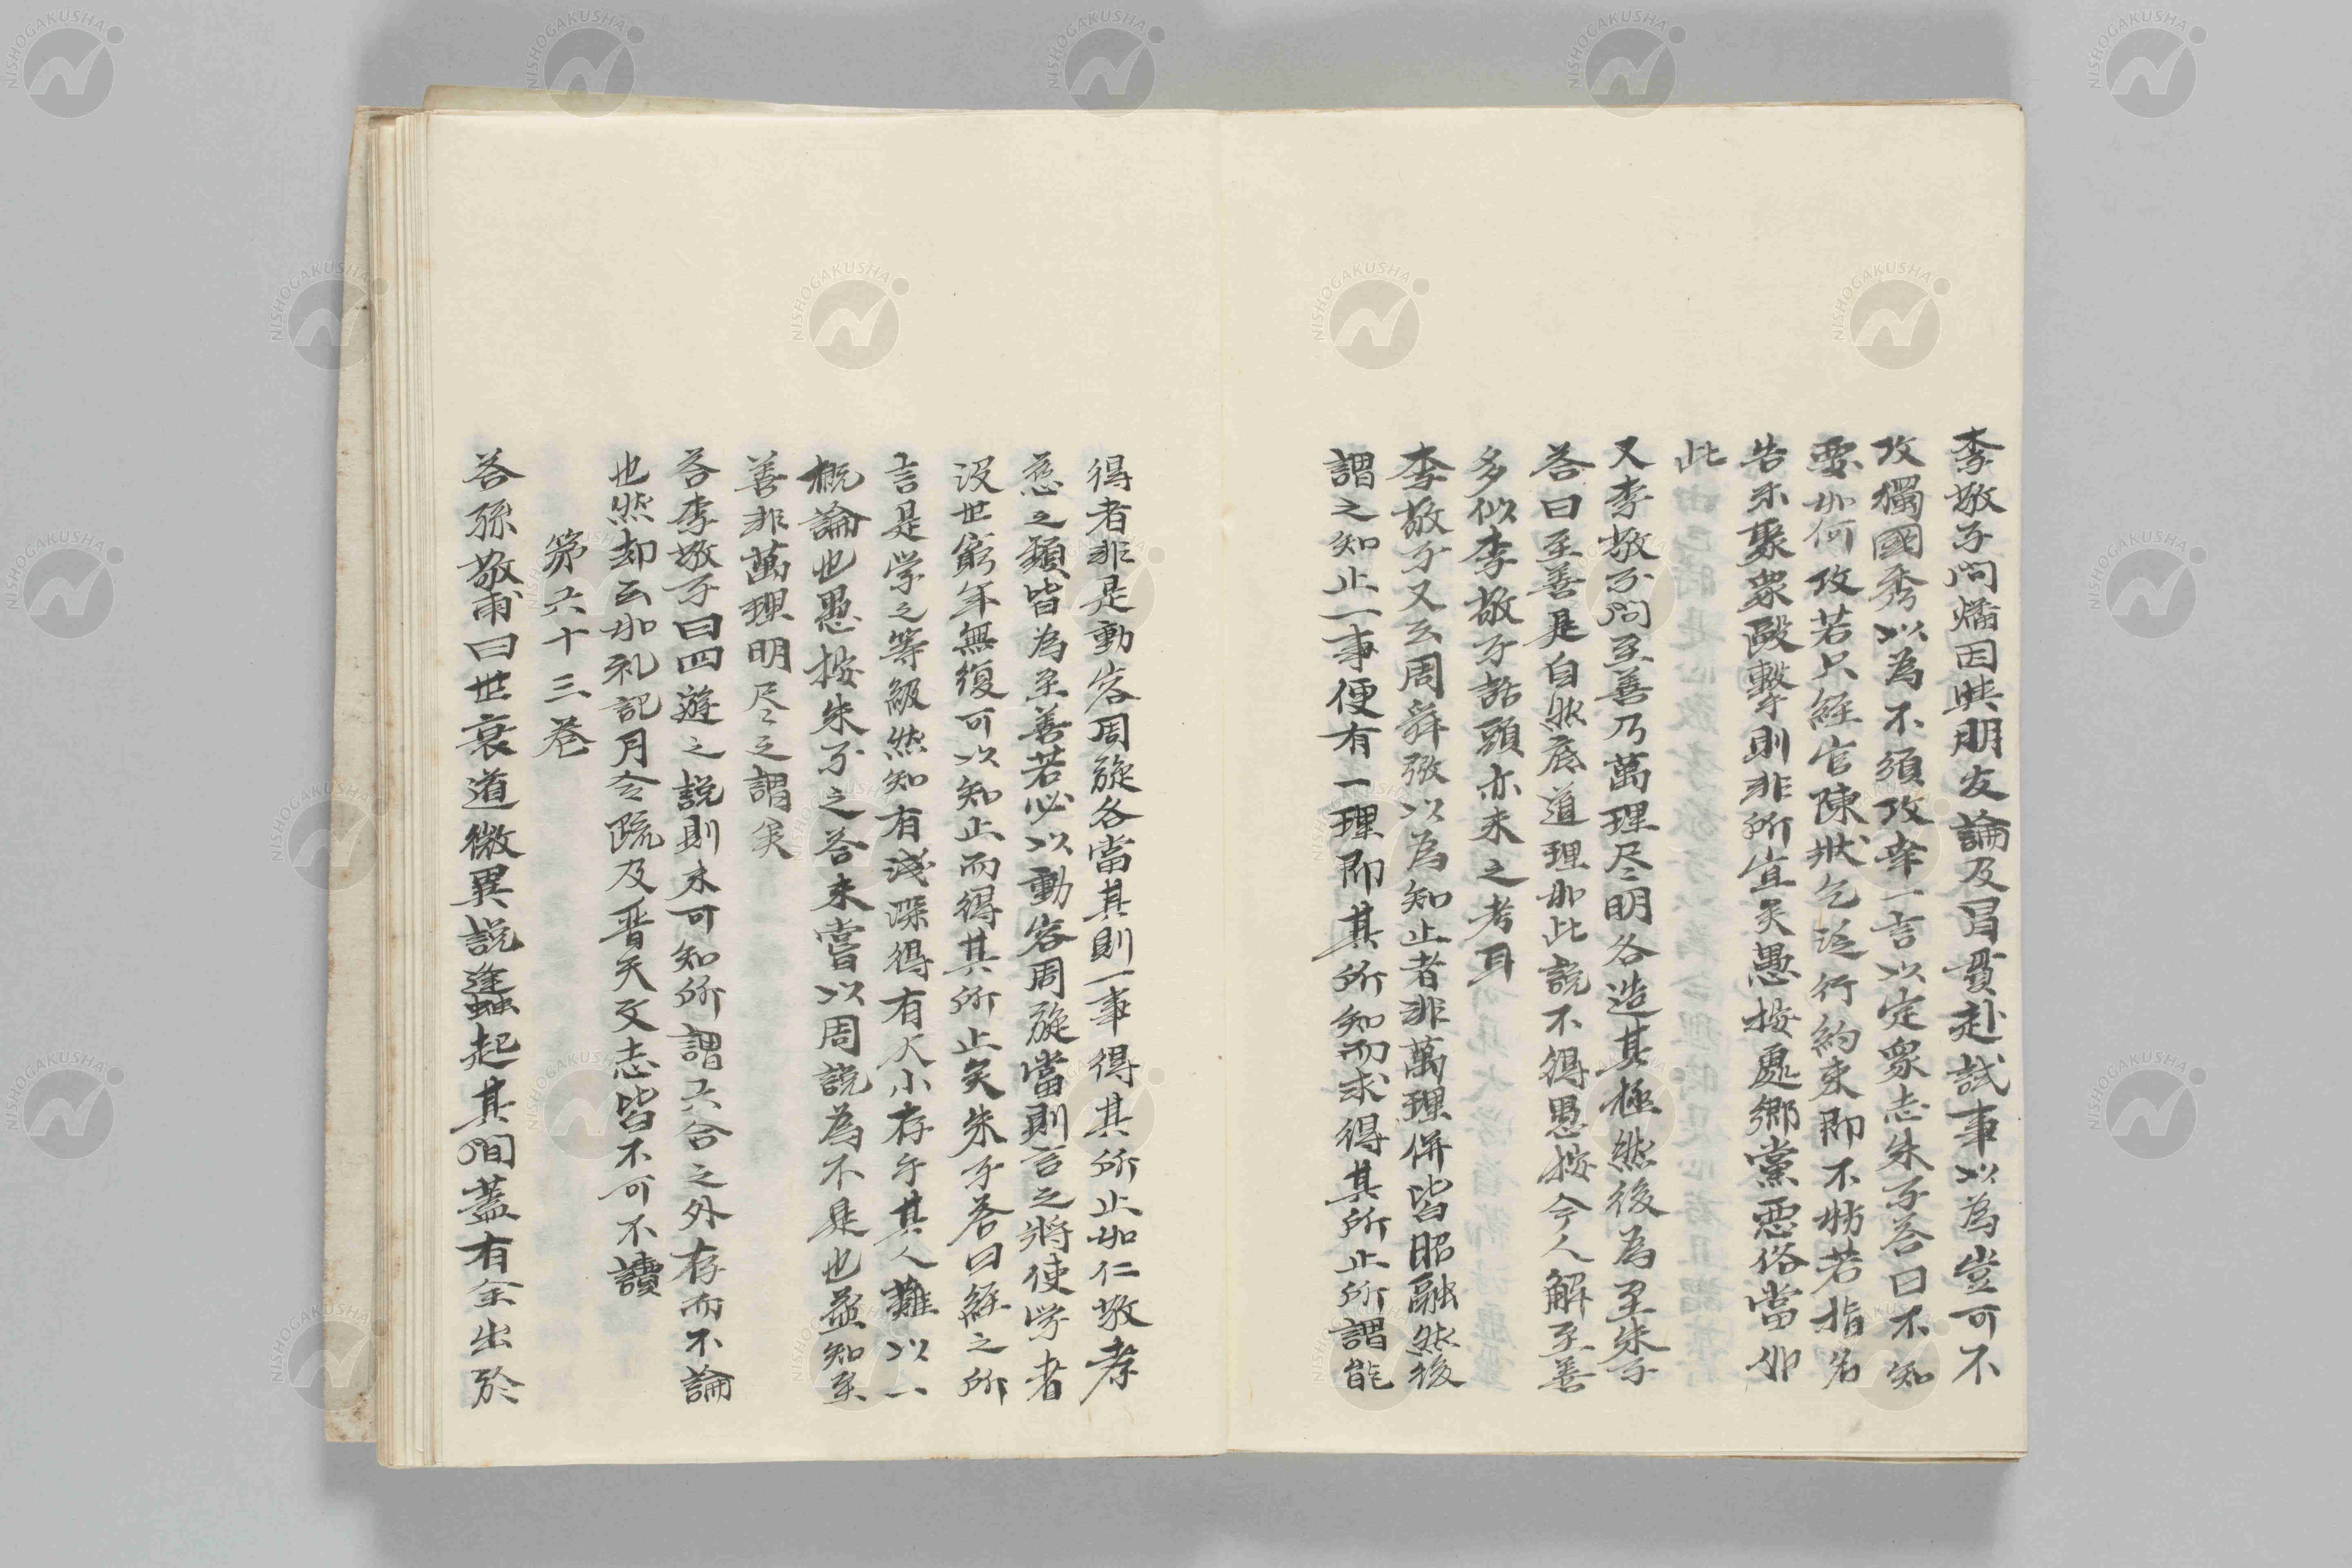 李敬子問燔因與朋友論及冒貫赴試事以為豈可不
攻獨國秀以為不須攻幸一言以定衆志朱子答曰不知
要如何攻若只經官陳狀乞泛行約束即不妨若指名
告示聚衆毆擊則非所宜矣愚按處鄉黨惡俗當如
此
又李敬子問至善乃萬理尽明各造其極然後為至朱子
答曰至善是自然底道理如此説不得愚按今人解至善
多似李敬子話頭亦未之考耳
李敬子又云周舜弼以為知止者非萬理併皆昭融然後
謂之知止一事便有一理即其所知而求得其所止所謂能
得者非是動容周旋各當其則一事得其所止如仁敬孝
慈之類皆為至善若必以動容周旋當則言之將使学者
没世窮年無復可以知止而得其所止矣朱子答曰經之所
言是学之等級然知有淺深得有大小存乎其人難以一
概論也愚按朱子之答未嘗以周説為不是也益知至
善非萬理明尽之謂矣
答李敬子曰四遊之説則未可知所謂六合之外存而不論
也然却云如礼記月令疏及晋天文志皆不可不讀
第六十三巻
答孫敬甫曰世衰道微異説蠭起其間蓋有全出於
NISHOGAKUSHA